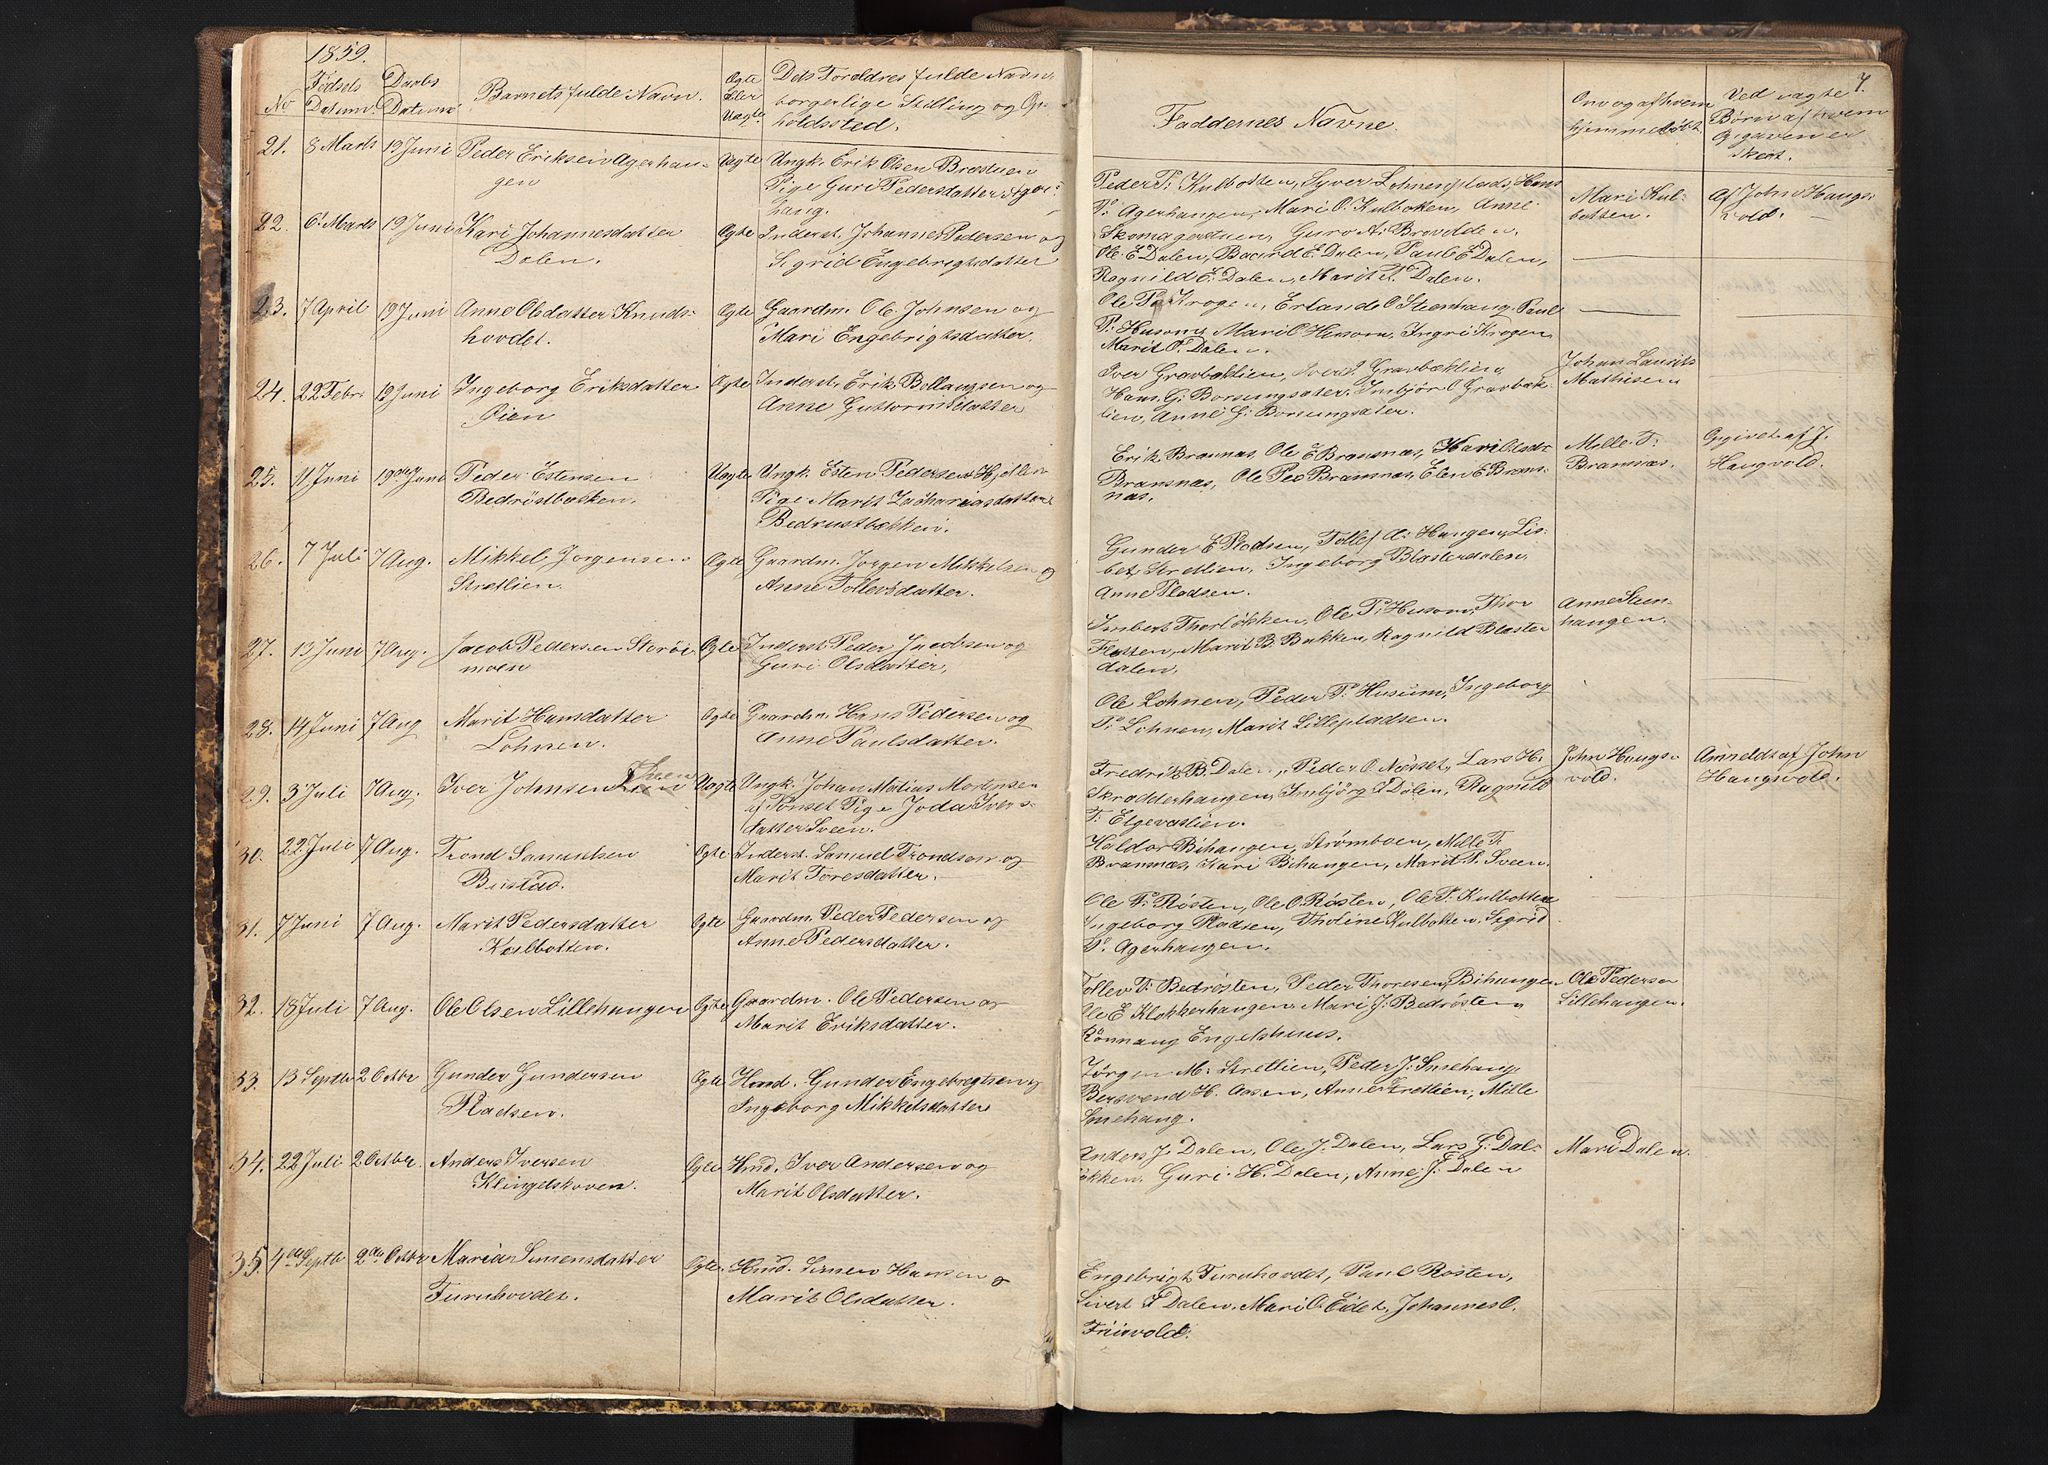 1859.
7.
No
Fødsels
Datum.
Daabs
Datum
Barnets fulde Navn.
Ægte
Eller
Uægte.
Dets Foreldres fulde Navn
borgerlige Stilling og Op-
holdssted.
Faddernes Navne.
Om og af hvem
hjemmedøbt
Ved uægte
Børn af hvem
Opgaven er
skeet.
21. 8 Marts 19 Juni Peder Eriksen Agerhau-
gen
Uægte Ungk. Erik Olsen Brostuen
Pige Guri Pedersdatter Ager-
haug.
Peder P. Kulbotten, Syver Lohnespladse, Hans
P. Agerhaugen, Mari O. Kulbotten, Anne
Skomagerstuen, Guro A. Brovolden.
Mari Kul-
botten.
Af John Haugs-
vold.
22. 6 Marts 19 Juni Kari Johannesdatter
Dalen.
Ægte Inderst. Johannes Pedersen og
Sigrid Engebrigtsdatter
Ole E Dalen, Baard E. Dalen, Paul E Dalen,
Ragnild E. Dalen, Marit P. Dalen.
23. 7 April 19 Juni Anne Olsdatter Knuds-
hovdet.
Ægte Gaardm. Ole Johnsen og
Mari Engebrigtsdatter.
Ole P. Krogen, Erland O Steenhaug, Paul
P. Husom, Mari O Husom, Ingri Krogen,
Marit P. Dalen.
24. 22 Febr. 19 Juni Ingeborg Eriksdatter
Øien
Ægte Inderst. Erik Bottengsen og
Anne Guttormsdatter
Iver Gravbæklien, Iver J Gravbæklien,
Hans G. Borsungsæter, Imbjør O Gravbæk-
lien, Anne G. Borsungsæter.
Johan Laurits
Mathisen
25. 11 Juni 19de Juni Peder Estensen
Bedröstbækken.
Uægte Ungk. Esten Pedersen Hjellen
Pige Marit Zachariasdatter
Bedrustbækken.
Erik Bransnæs, Ole E Bransnæs, Kari Olsdr
Bransnæs, Ole Peo Bransnæs, Elen E Brans-
næs.
Mille T.
Bransnæs.
Opgivet af J.
Haugvold.
26. 7 Juli 7 Aug. Mikkel Jorgensen
Stretlien.
Ægte Gaardm. Jorgen Mikkelsen og
Anne Tollevsdatter.
Gunder E Pladsen, Tollef A. Haugen, Lis-
bet Stretlien, Ingeborg Blæsterdalen
Anne Pladsen.
27. 13 Juni 7 Aug. Jacob Pedersen Storöi-
moen
Ægte Inderst Peder Jacobsen og
Guri Olsdatter,
Imbert Thorløkken, Ole P. Husom, Thor
Flatten, Marit B. Bakken, Ragnild Blæster
dalen.
Anne Steen-
haugen.
28. 14 Juni 7 Aug Marit Hansdatter
Lohnen.
Ægte Gaardm. Hans Pedersen og
Anne Paulsdatter.
Ole Lohnen, Peder P. Husum, Ingeborg
P. Lohnen, Marit Lillepladsen.
29. 3 Juli 7 Aug. Iver Johnsen Sveen
Uægte Ungk. Johan Matius Mortensen
af Tønset Pige Joda Ivers-
datter Sveen.
Fredrik B. Dalen, Peder O. Næsset, Lars H.
Skrædderhaugen, Imbjörg P Dalen, Ragnild
T. Elgevaslien.
John Haugs-
vold.
Anmeldt af John
Haugsvold.
30. 22 Juli 7 Aug. Trond Samuelsen
Bustad.
Ægte Inderst. Samuel Trondsen og
Marit Toresdatter.
Haldor Bihaugen, Strømboen, Mille T.
Bransnæs, Kari Bihaugen, Marit P. Sveen.
31. 7 Juni 7 Aug. Marit Pedersdatter
Kulbotten.
Ægte Gaardm. Peder Pedersen og
Anne Pedersdatter.
Ole P. Røsten, Ole O. Røsten, Ole P. Kulbotten
Ingeborg Pladsen, Tholine Kulbotten, Sigrid
P. Agerhaugen.
32. 13 Juli 7 Aug. Ole Olsen Lillehaugen
Ægte Gaardm. Ole Pedersen og
Marit Eriksdatter.
Tollev P. Bedrøsten, Peder Thoresen Bihaugen
Ole E Klokkerhaugen, Mari J. Bedrøsten,
Rønnaug Engelshuus.
Ole Pedersen
Lillehaugen.
33. 13 Septb 2 Octbr Gunder Gundersen
Pladsen.
Ægte Hmd. Gunder Engebrigtsen og
Ingeborg Mikkelsdatter
Jørgen M. Stretlien, Peder J. Smehaug,
Bersvend H. Aasen, Anne Stretlien, Mille
Smehaug.
34. 22 Juli 2 Octbr. Anders Iversen
Klingelshoven.
Ægte Hmd. Iver Andersen og
Marit Olsdatter.
Anders J. Dalen, Ole J. Dalen, Lars G. Dal-
løkken. Guri H. Dalen, Anne J. Dalen
Mari Dalen.
35. 4de Septb 2den Octbr Maria Simensdatter
Furuhovdet.
Ægte. Hmd. Simen Hansen o
Marit Olsdatter.
Engebrigt Furuhovdet, Paul Rosten,
Sivert P Dalen, Mari O. Eidet, Johannes O.
Friisvold.